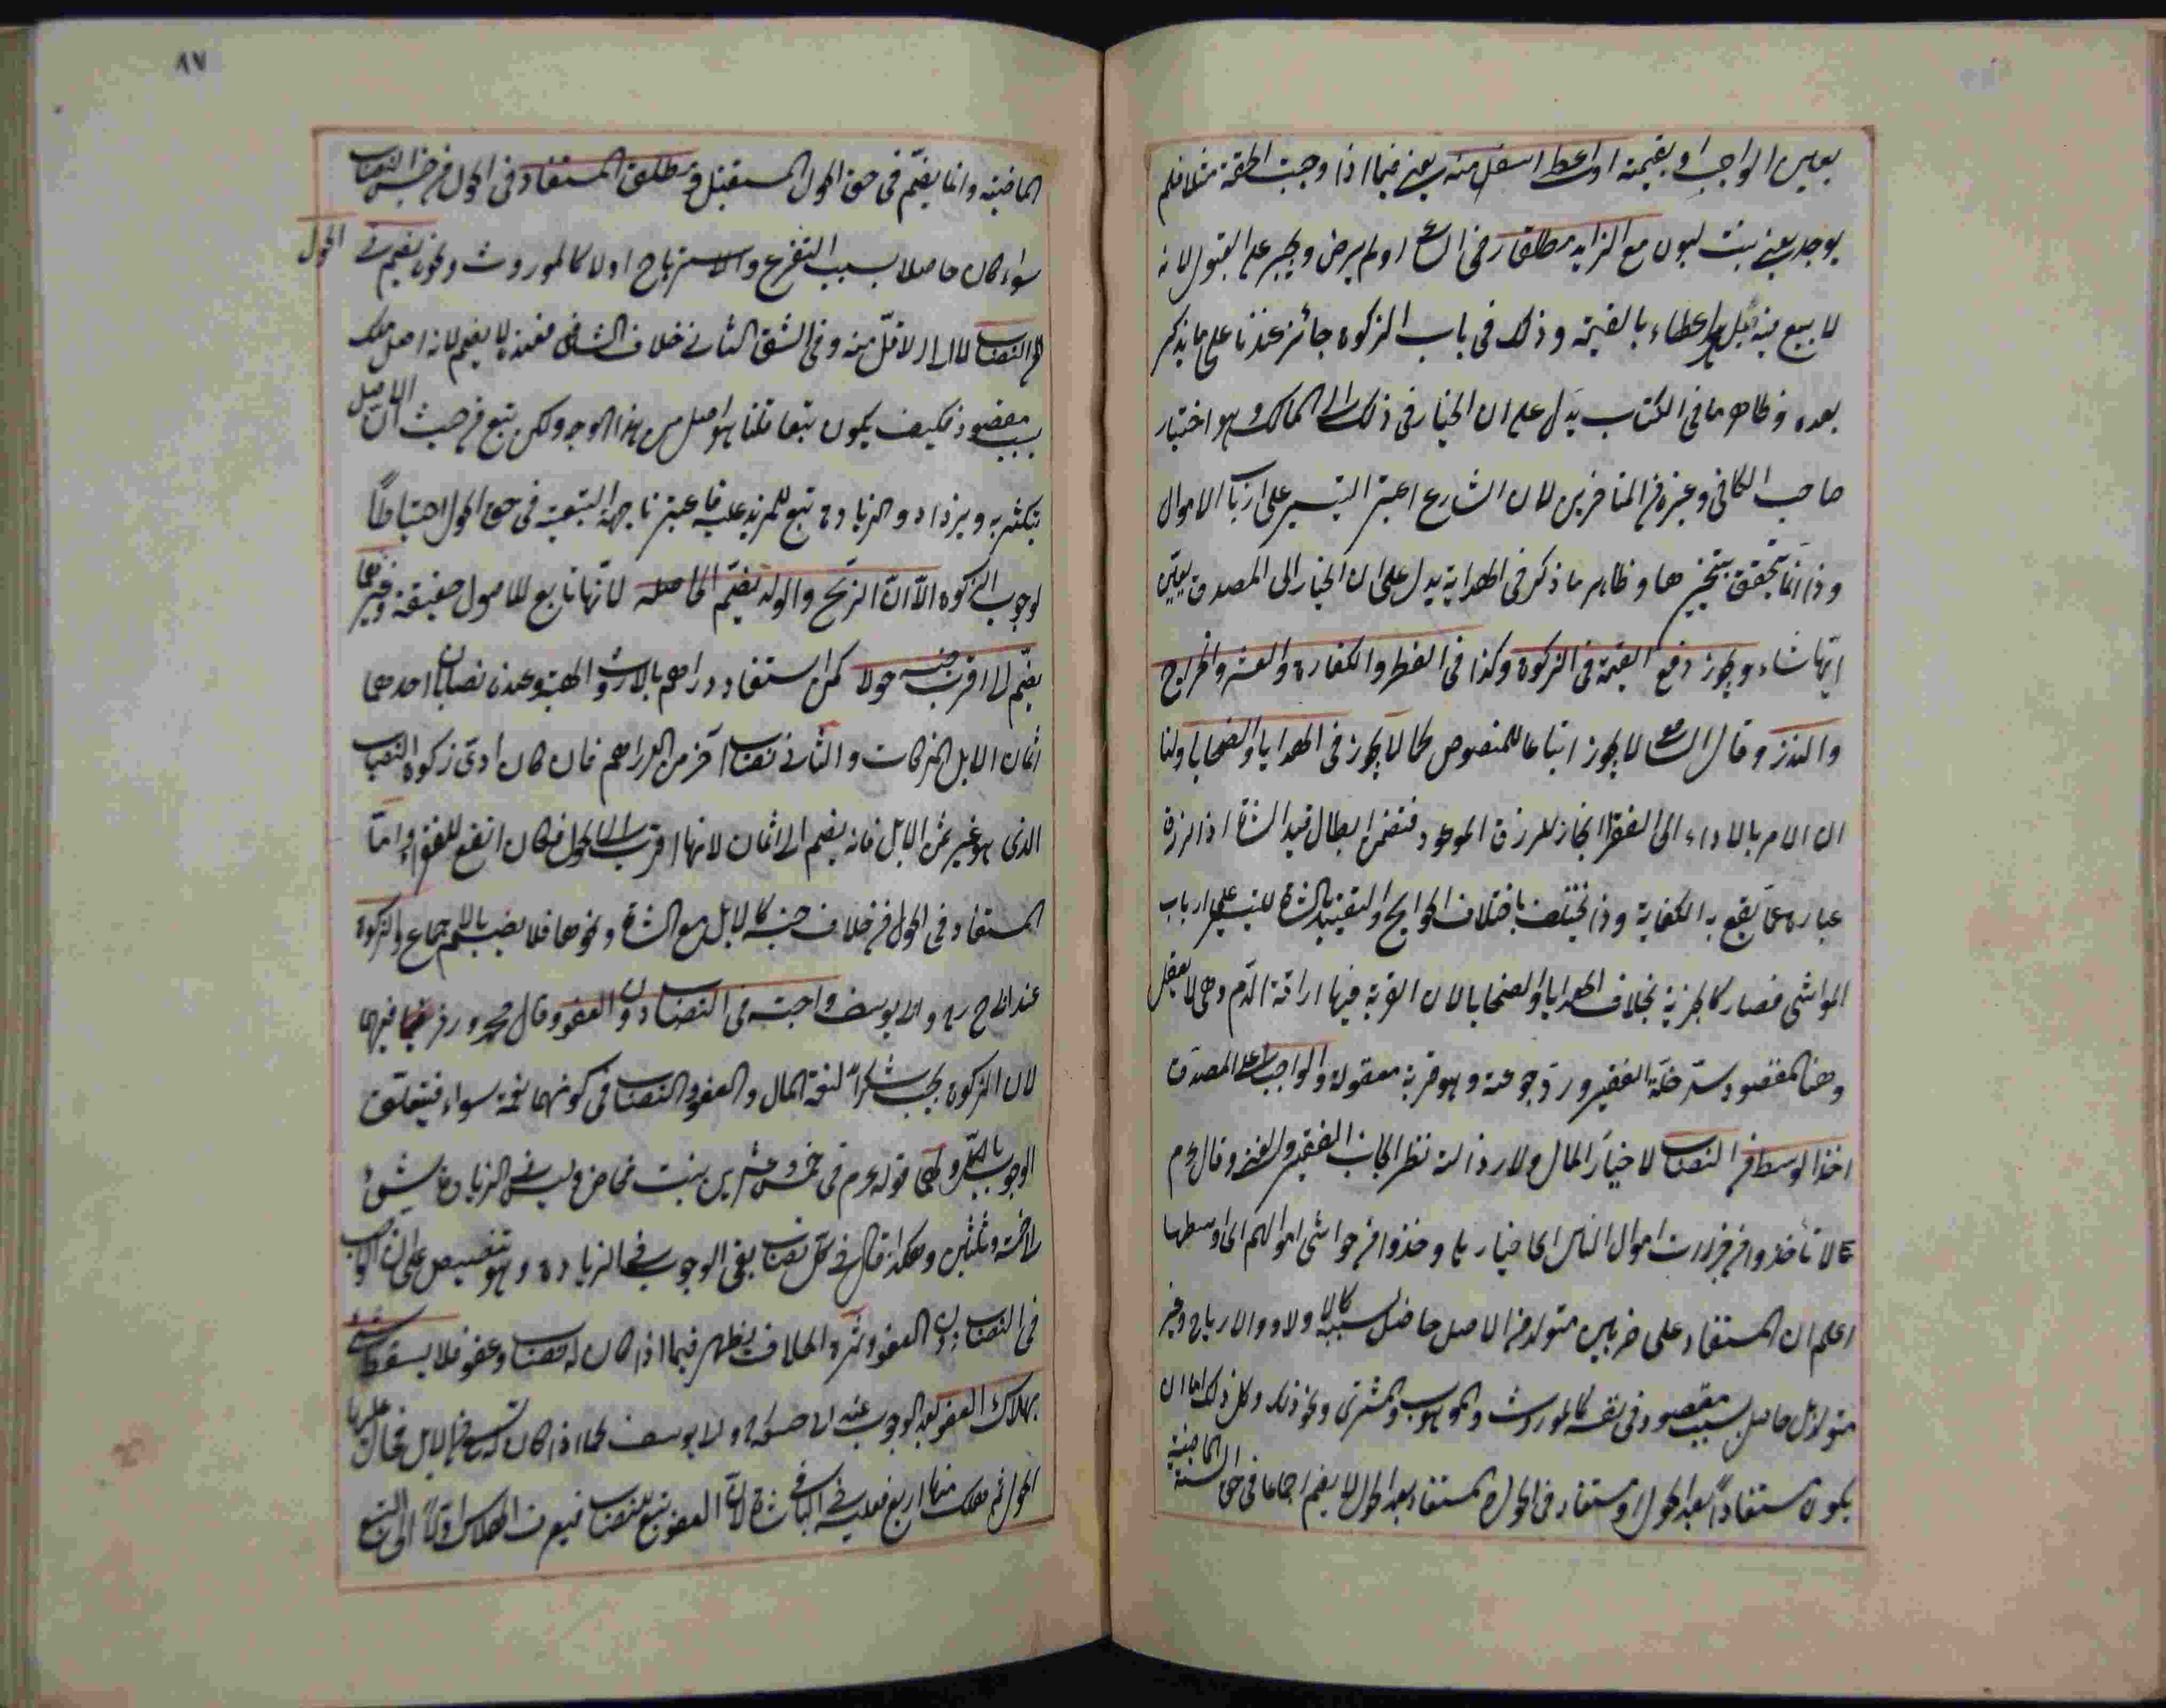 بعين الواجب او بقيمته او اعطى اسفل منه يعنى فيما اذا وجبت الحقة مثلا فلم
يوجد يعنى بنت لبون مع الزايد مطلقا رضى الساعى او لم يرض ويجبر على القبول لانه
لا بيع فيه بل اعطاء بالقيمة وذلك فى باب الزكوة جائز عندنا على ما يذكر
بعده وظاهر ما فى الكتاب يدل على ان الخيار فى ذلك الى المالك وهو اختيار
صاحب الكافى وغيره من المتاخرين لان الشارع اعتبر التيسير على ارباب الاموال
وذا انما يتحقق بتخييرها وظاهر ما ذكر فى الهداية يدل على ان الخيار الى المصدق يعين
ايها شاء ويجوز دفع القيمة فى الزكوة وكذا فى الفطر والكفارة والعشر والخراج
والنذر وقال الشافعى لا يجوز اتباعا للمنصوص كما لا يجوز فى الهدايا والضحايا ولنا
ان الامر بالاداء الى الفقراء انجاز للرزق الموعود فتضمن ابطال قيد الشاة اذ الرزق
عبارة عما يقع به الكفاية وذا يختلف باختلاف الحوايج والتقييد بالشاة للتيسير على ارباب
المواشى فصار كالجزية بخلاف الهدايا والضحايا لان القربة فيها اراقة الدم وهى لا يعقل
وهنا المقصود سد خلة الفقير ورد جوعته وهو قربة معقولة والواجب على المصدق
اخذ الوسط من النصاب لا خيار المال ولا رذالته نظرا لجانب الفقير والغنى وقال عم
لا تأخذوا من حزرات اموال الناس اى خيارها وخذوا من حواشى اموالهم اى اوسطها
اعلم ان المستفاد على ضربين متولد من الاصل حاصل بسببه كالاولاد والارباح وغير
متولد بل حاصل بسبب مقصود فى نفسه كالموروث والموهوب والمشترى ونحو ذلك وكل ذلك اما ان
يكون مستفادا بعد الحول او مستفاد فى الحول فالمستفاد بعد الحول لا يضم اجماعا فى حق السنة الماضية
٨٧
الماضية وانما يضم فى حق الحول المستقبل ومطلق المستفاد فى الحول من جنس النصاب
سواء كان حاصلا بسبب التفريع والاسترباح او لا كالموروث ونحوه يضم فى الحول
الى النصاب لا الى الاقل منه وفى الشق الثانى خلاف الشافعى فعنده لا يضم لانه اصل ملك
بسبب مقصود فكيف يكون تبعا قلنا هو اصل من هذا الوجه ولكن تبع من حيث ان الاصل
يتكثر به ويزداد والزيادة تبع للمزيد عليه فاعتبرنا جهة التبعية فى حق الحول احتياطا
لوجوب الزكوة الا ان الربح والولد يضم الى اصله لانها تابع للاصول حقيقة وغيرهما
يضم الى اقرب جنسه حولا كمن استفاد دراهم بالارث والهبة وعنده نصابان احدهما
اثمان الابل المزكات والثانى نصاب آخر من الدراهم فان كان ادى زكوة النصاب
الذى هو غير ثمن الابل فانه يضم الى الاثمان لانها اقرب الى الحول فكان انفع للفقراء واما
المستفاد فى الحول من خلاف جنسه كالابل مع الشاة ونحوها فلا يضم بالاجماع والزكوة
عند ابى ح ره وابى يوسف واجبة فى النصاب دون العفو وقال محمد وزفر فيهما
لان الزكوة يجب شكرا لنعمة المال والعفو والنصاب فى كونهما نعمة سواء فيتعلق
الوجوب بالكل ولهما قوله عم فى خمس وعشرين بنت مخاض وليس فى الزيادة شئ
الى خمسة وثلثين وهكذا قال فى كل نصاب نفى الوجوب فى الزيادة وهو تنصيص على ان الواجب
فى النصاب دون العفو وثمرة الخلاف يظهر فيما اذا كان له نصاب وعفو فلا يسقط شئ
بهلاك العفو بعد الوجوب عند ابى حنيفة وابى يوسف كما اذا كان له تسع من الابل فحال عليها
الحول ثم هلك منها اربع فعليه فى الباقى شاة لان العفو تبع للنصاب فيصرف الهلاك اولا الى التبع